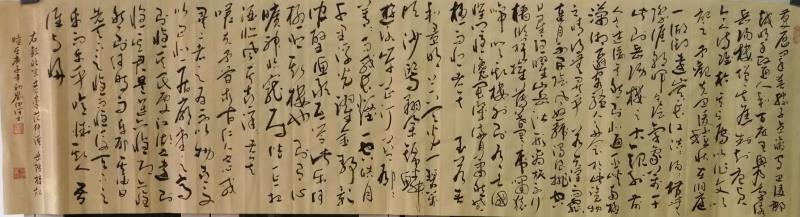 慶曆四年春滕子京謫守巴陵郡
越明年政通人和百廢具興乃重修
岳陽樓增其舊制刻唐賢
今人詩賦於其上屬予作文以
記之予觀夫巴陵勝狀在洞庭
一湖銜遠山吞長江浩浩湯湯橫無
際涯朝暉夕陰氣象萬千
此則岳陽樓之大觀也前
人之述備矣然則北通巫峽南極
瀟湘遷客騷人多會於此覽物
之情得無異乎若夫霪雨霏霏
連月不開陰風怒號濁浪排空
日星隱曜山岳潛形商旅不行
檣傾楫摧薄暮冥冥虎嘯猿
啼登斯樓也則有去國
懷鄉憂讒畏譏滿目蕭然感
極而悲者矣 至若春
和景明波瀾不驚上下天光一碧萬
頃沙鷗翔集錦鱗
游泳岸芷汀蘭郁郁
青青而或長煙一空皓月
千里浮光躍金靜影
沉璧漁歌互答此樂何
極登斯樓也則有心
曠神怡寵辱偕忘把酒
臨風其喜洋洋者矣
嗟夫予嘗求古仁人之心或
異二者之為何哉不以物喜不
以己悲居廟堂之高
則憂其民處江湖之遠則
憂其君是進亦憂退亦憂
然則何時而樂耶其必曰
先天下之憂而憂後天下之
樂而樂乎噫微斯人吾
誰與歸
右錄北宋范仲淹岳陽樓記